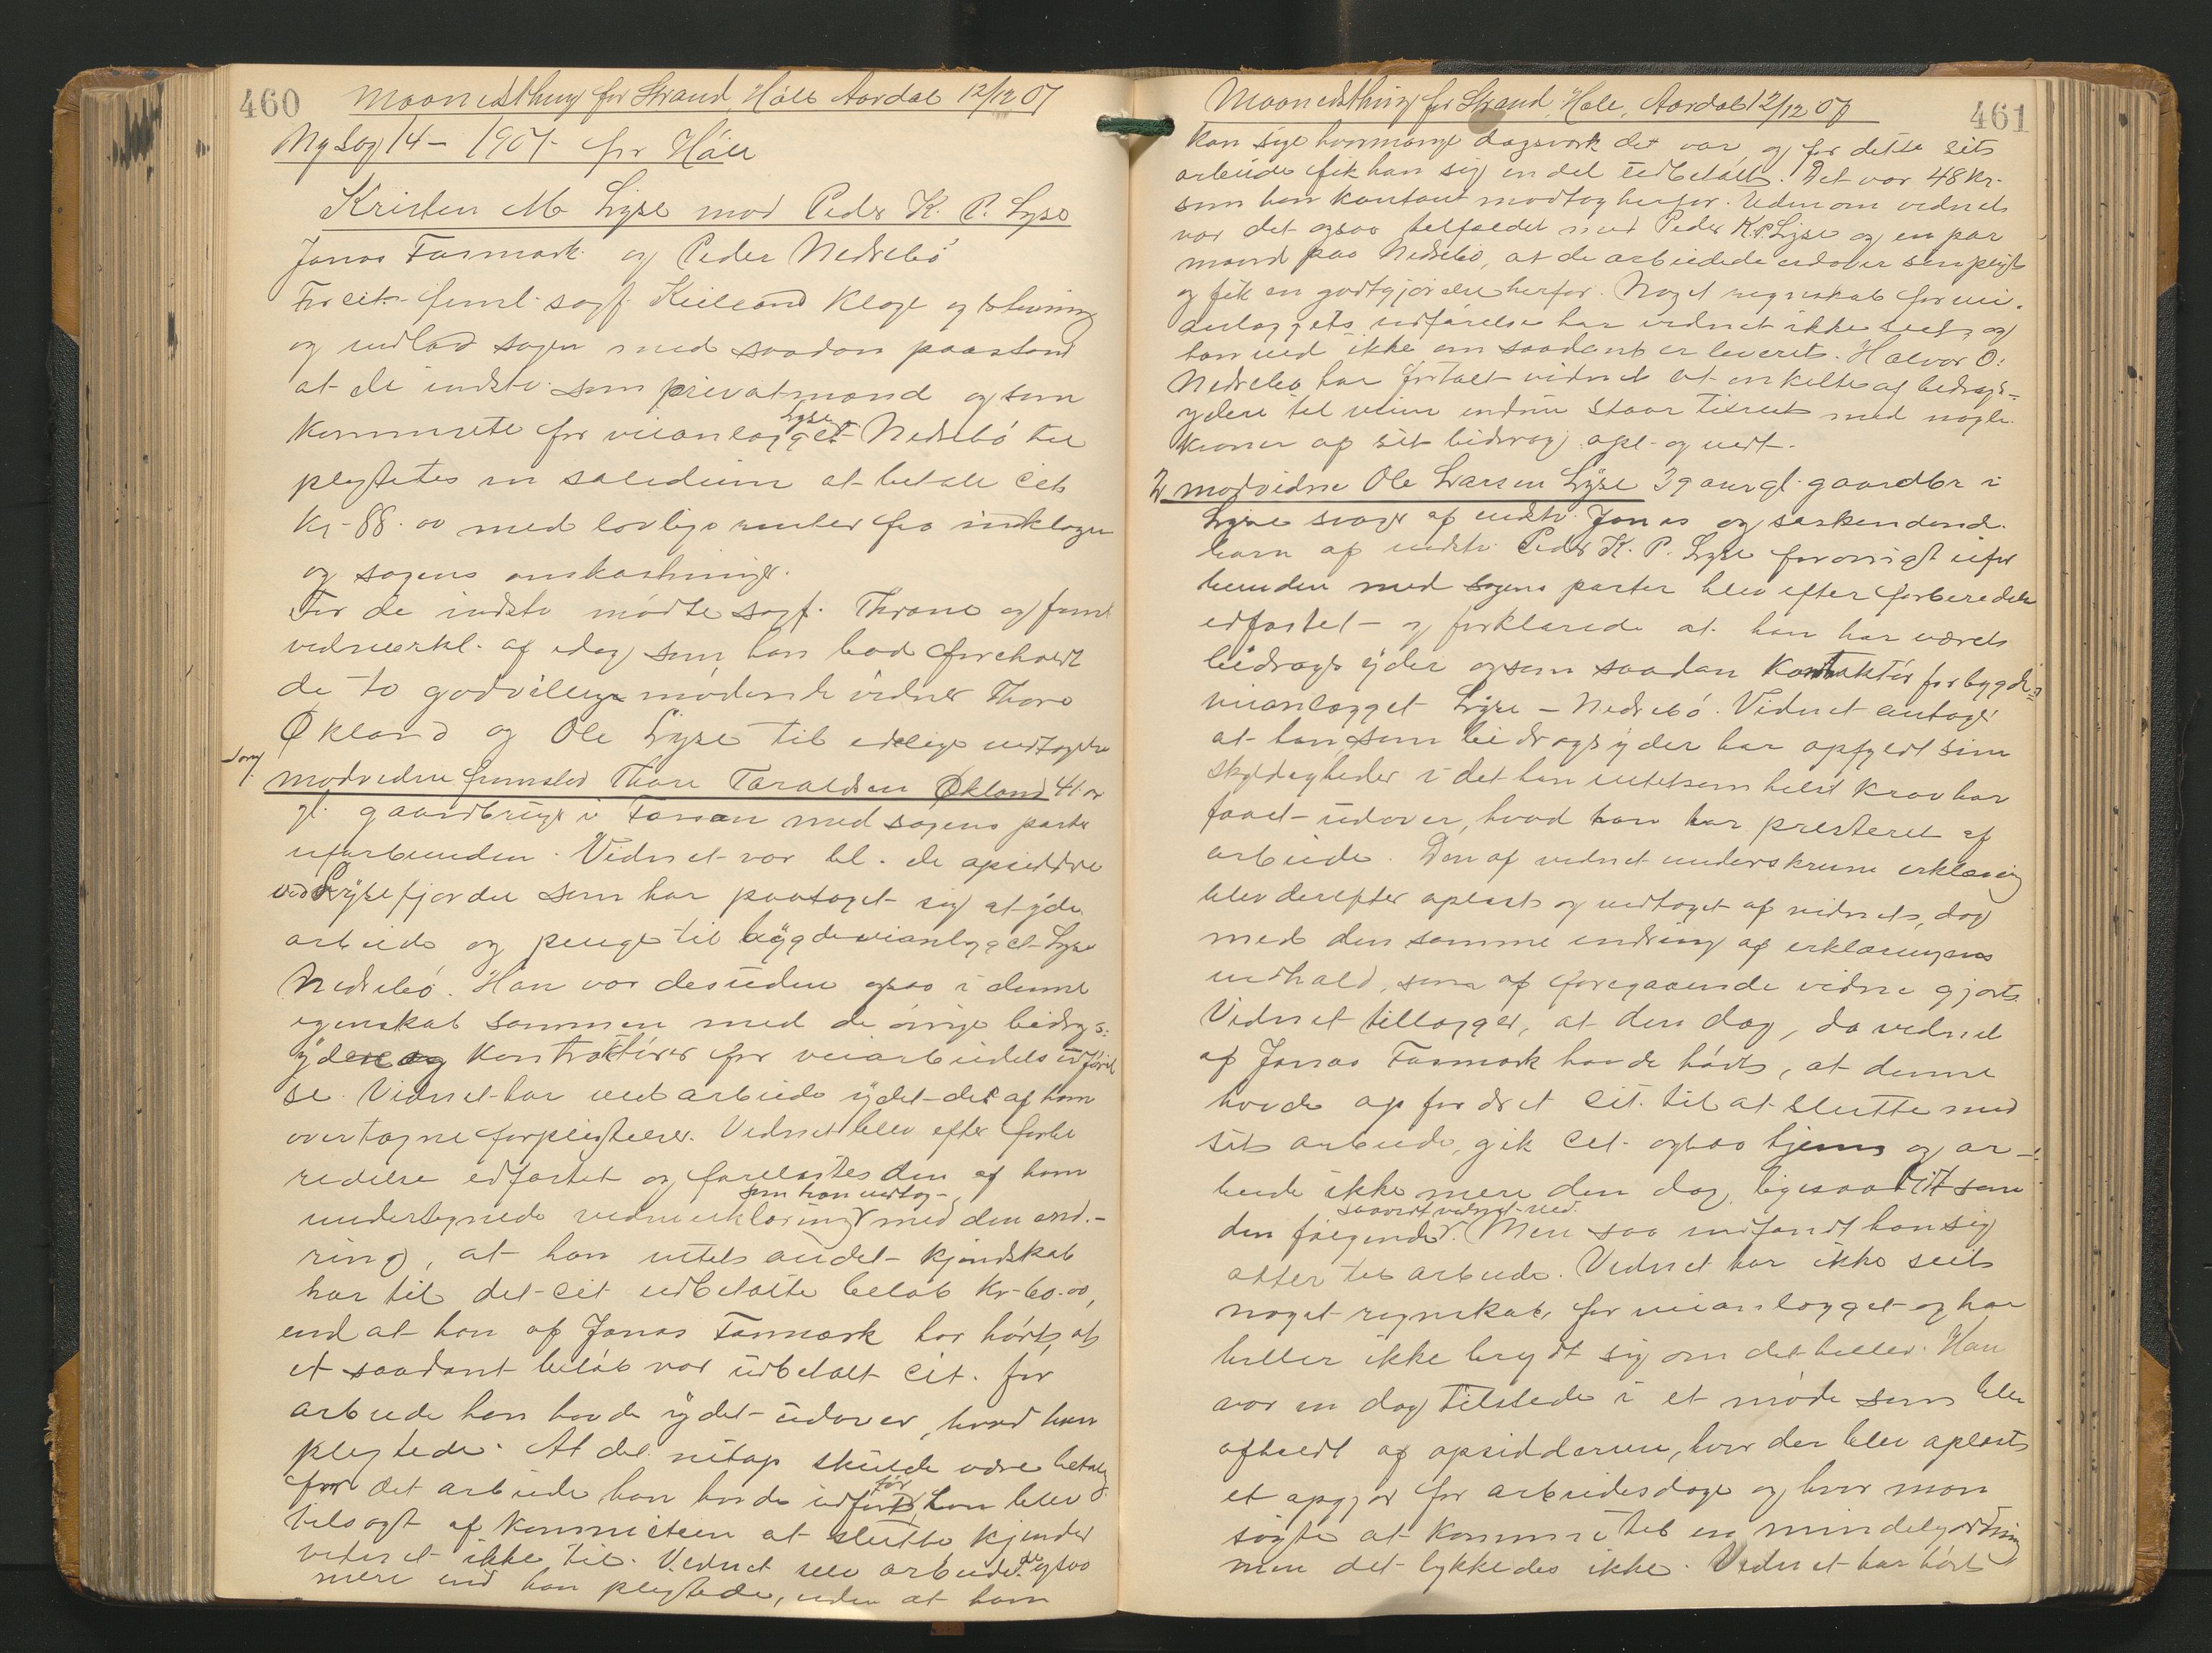 460
Maanedsthing for Strand, Høle Aardal 12/12 07
Ny Sag 14 - 1907 - for Høle
Kristen M Lyse mod Peder K. P. Lyse
Jonas Fasmark og Peder Nedrebö
For cit. freml. sagf. Kielland Klage og
og indlod sagen med saadan paastand
at de indstv. som privatmænd og som
Kommitte for veianlægget Lyse Nedrebö til
plegtetes in solidum at betale Cit.
Kr. 88.00 med lovlige renter fra indklagen
og sagens omkostninger.
For de indstv mödte sagf. Thrane og freml
vidneerkl. af idag som han bad foreholdt
de to godvilligen mödende vidner Thore
Økland og Ole Lyse til edelige vedtagelse
modvidne fremstod Thore Taraldsen Økland 41 aar
gl. gaardbruger i Fossan med sagens parter
uforbunden. Vidnet var bl. de opsiddere
ved Lysefjorden som har paataget sig at yde
arbeide og penge til bygdeveianlægget Lyse
Nedrebö. Han var desuden ogsaa i denne
egenskab sammen med de övrige bidrags-
ydere Kontraktörer for veiarbeidets udförel
se. Vidnet har ved arbeide ydet det af ham
overtagne forpligtelser. Vidnet blev efter forbe
redelse edfæstet og forelæstes den af ham
undertegnede vidneerklæring som han vedtog med den ænd-
ring, at han intet andet kjendskab
har til det cit udbetalte belöb Kr. 60.00,
end at han af Jonas Fasmark har hört, at
et saadant belöb var udbetalt Cit. for
arbeide han havde ydet udover, hvad han
plegtede. At det netop skulde være betaling
for det arbeide han havde udfört, för han blev
tilsagt af Kommiteen at slutte kjender
vidnet ikke til. Vidnet selv arbeidede ogsaa
mere end han plegtede, uden at han
461
Maanedsthing for Strand, Høle, Aardal 12/12 07
kan sige hvormange dagsverk det var og for dette sit
arbeide fik han sig en del udbetalt. Det var 48 Kr.
som han kontant modtog herfor. Udenom vidnet
var det ogsaa tilfældet med Peder K. P. Lyse og en par
mænd paa Nedrebö, at de arbeidede udover sin pligt
og fik en godtgjörelse herfor. Noget regnskab for vei-
anlæggets udförelse har vidnet ikke seet, og
han ved ikke om saadant er leveret. Halvor O.
Nedrebö har fortalt vidnet at enkelte af bidrags-
ydere til veien endnu staar tilrest med nogle
Kroner af sit bidrag opl. og vedt.
2 modvidne Ole Larsen Lyse 39 aar gl. gaardbr i
Lyse svoger af indstv. Jonas og söskendend.
barn af indstv. Peder K. P. Lyse forövrigt ufor
bunden med sagens parter blev efter forberedelse
edfæstet og forklarede at han har været
bidragsyder og som saadan Kontraktör for bygde-
veianlægget Lyse - Nedrebö. Vidnet antager
at han som bidragsyder har opfyldt sine
skyldigheder i det han intetsomhelst krav har
faaet udover, hvad han har presteret af
arbeide. Den af vidnet underskrevne erklæring
blev derefter oplæst og vedtaget af vidnet, dog
med den samme endring af erklæringens
indhold, som af foregaaende vidne gjort.
Vidnet tillægger, at den dag, da vidnet
af Jonas Fasmark havde hört, at denne
havde opfordret cit. til at slutte med
sit arbeide, gik cit. ogsaa hjem og ar-
beide ikke mere den dag, ligesaalidt som
den fölgende saavidt vidnet ved. Men saa indfandt han sig
atter til arbeide. Vidnet har ikke seet
noget regnskab for veianlægget og har
heller ikke brydt sig om det heller. Han
var en dag tilstede i et möde som blev
afholdt af opsidderne, hvor der blev oplæst
et opgjör for arbeidsdage og hvor man
sögte at komme til en mindelig ordning
men det lykkedes ikke. Vidnet har hört